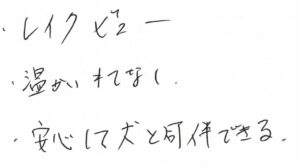 ・レイクビュー
・温かいもてなし.
・安心して犬と同伴できる.